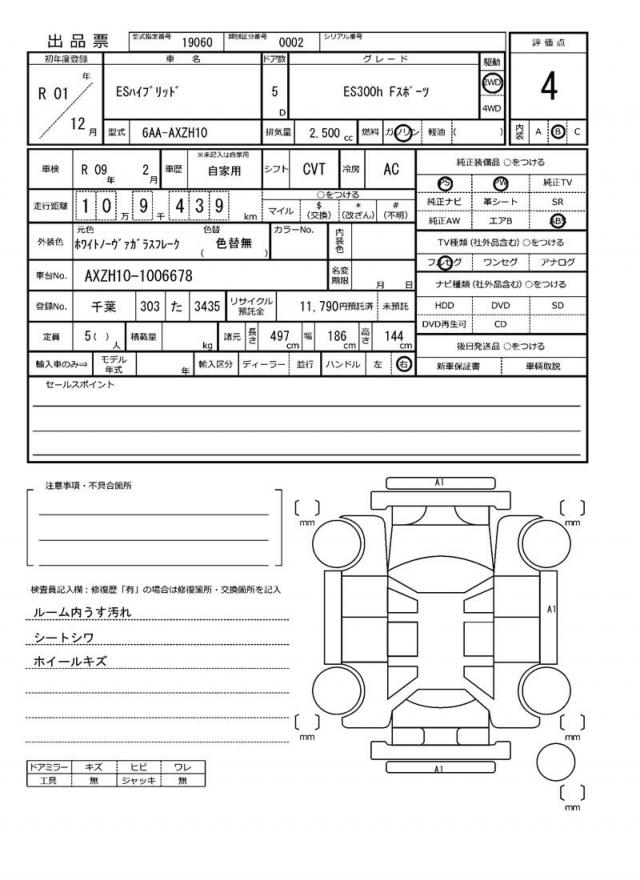 出品票 型式指定番号 19060 類別区分番号 0002 シリアル番号
評価点
初年度登録 車名 ドア数 グレード 駆動
R 01 年 12 月 ESハイブリッド 5 D ES300h Fスポーツ 2WD 4WD
4
型式 6AA-AXZH10 排気量 2,500 cc 燃料 ガソリン 軽油 ( )
内装 A B C
車検 R 09 年 2 月 車歴 ※未記入は自家用 自家用 シフト CVT 冷房 AC
純正装備品 ○をつける
PS PW 純正TV
純正ナビ 革シート SR
純正AW エアB ABS
走行距離 1 0 万 9 千 4 3 9 km
○をつける
マイル $ (交換) * (改ざん) # (不明)
外装色 元色 ホワイトノーヴァガラスフレーク 色替 ( 色替無 ) カラーNo. 内装色
TV種類 (社外品含む) ○をつける
フルセグ ワンセグ アナログ
車台No. AXZH10-1006678 名変期限 月 日
ナビ種類 (社外品含む) ○をつける
HDD DVD SD
DVD再生可 CD
登録No. 千葉 303 た 3435 リサイクル預託金 11,790円預託済 未預託
定員 5 ( ) 人 積載量 kg 諸元 長さ 497 cm 幅 186 cm 高さ 144 cm
後日発送品 ○をつける
新車保証書 車輌取説
輸入車のみ⇒ モデル年式 年 輸入区分 ディーラー 並行 ハンドル 左 右
セールスポイント
注意事項・不具合箇所
検査員記入欄:修復歴「有」の場合は修復箇所・交換箇所を記入
ルーム内うす汚れ
シートシワ
ホイールキズ
ドアミラー キズ ヒビ ワレ
工具 無 ジャッキ 無
A1
[ ] mm [ ] mm
A1
[ ] mm [ ] mm
A1
[ ] mm